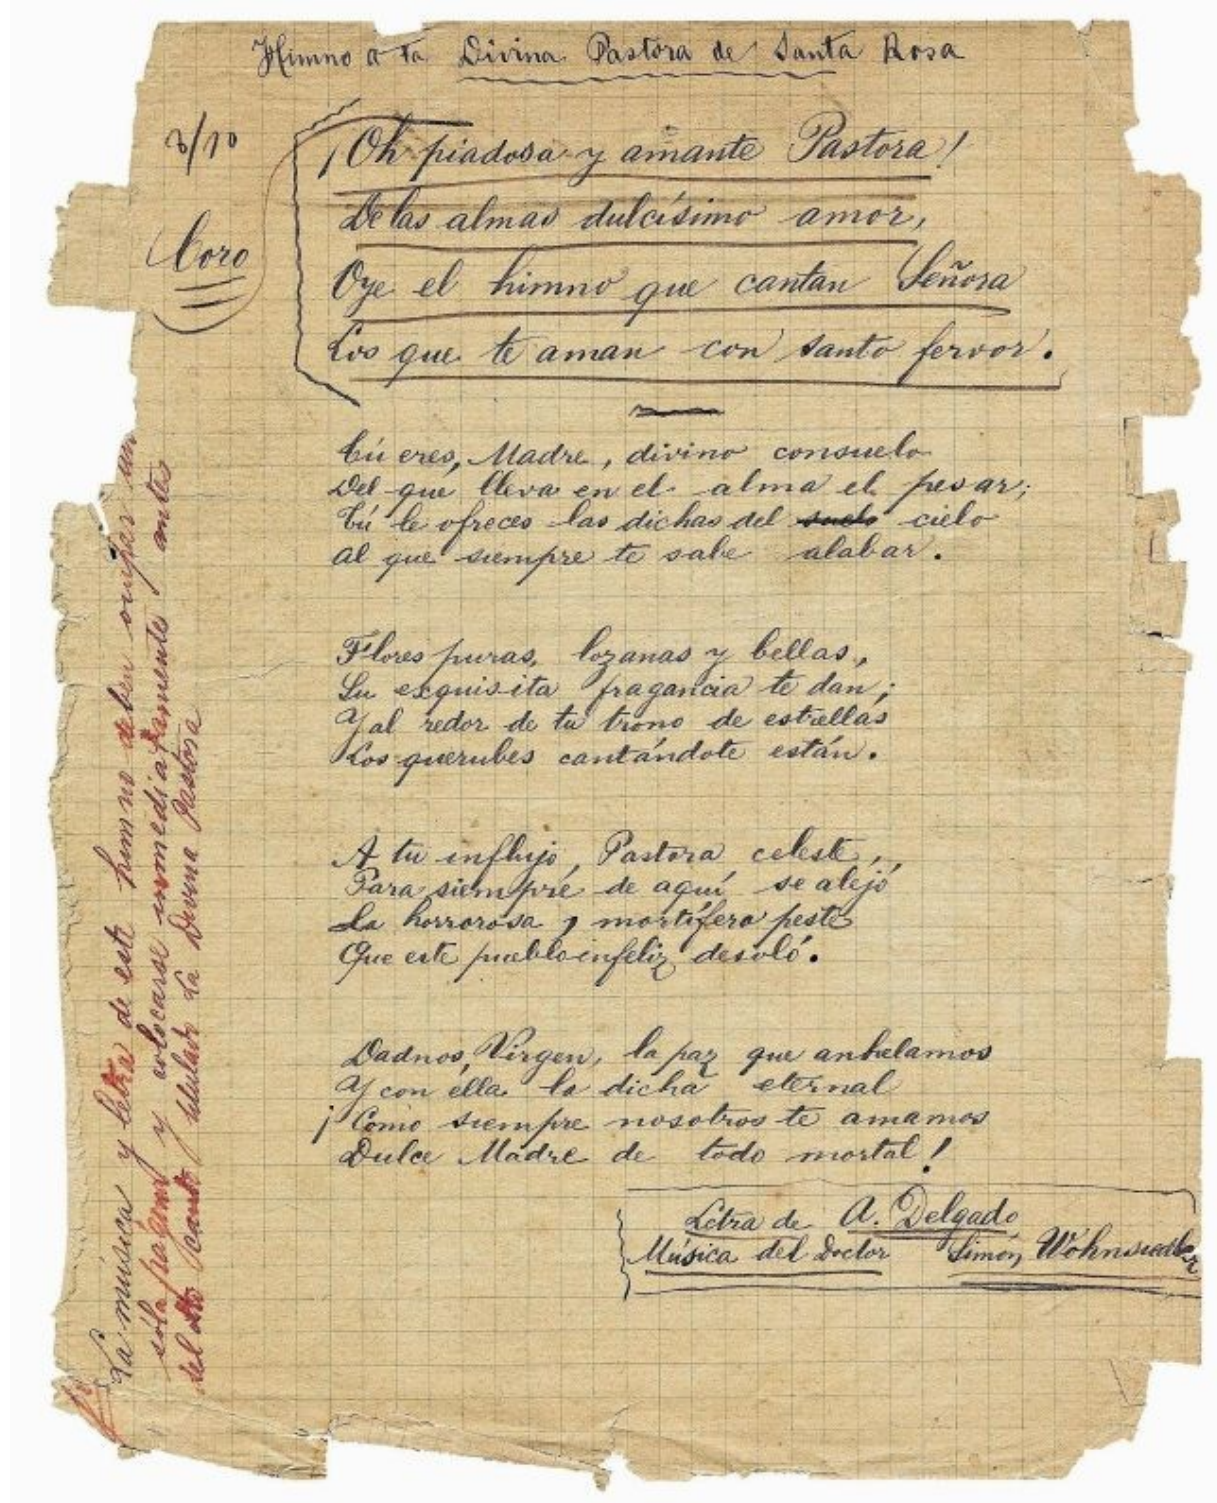 Himno a la Divina Pastora de Santa Rosa
3/10
Coro
¡Oh piadosa y amante Pastora!
De las almas dulcísimo amor,
Oye el himno que cantan Señora
Los que te aman con santo fervor.
Tú eres, Madre, divino consuelo
Del que lleva en el alma el pesar;
Tú le ofreces las dichas del suelo cielo
al que siempre te sabe alabar.
Flores puras, lozanas y bellas,
Su exquisita fragancia te dan;
Y al redor de tu trono de estrellas
Los querubes cantándote están.
A tu influjo, Pastora celeste,
Para siempre de aquí se alejó
La horrorosa y mortífera peste
Que este pueblo infeliz desoló.
Dadnos, Virgen, la paz que anhelamos
Y con ella la dicha eternal
¡Como siempre nosotros te amamos
Dulce Madre de todo mortal!
Letra de A. Delgado
Música del Doctor Simón Wohnsiedler
La música y letra de este himno deben ocupar una
sóla página y colocarse inmediatamente antes
del canto titulado La Divina Pastora